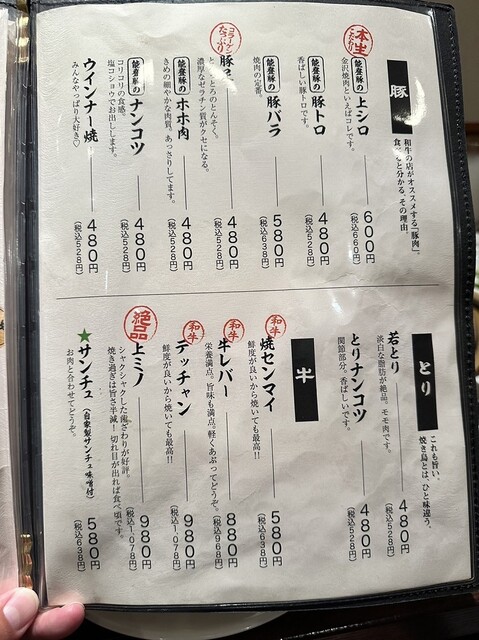 豚
和牛の店がオススメする『豚肉』。
食べると分かる、その理由。
本生
こだわり
能登豚の上シロ
600円
(税込660円)
金沢焼肉といえばコレです。
能登豚の豚トロ
480円
(税込528円)
香ばしい豚トロです。
能登豚の豚バラ
580円
(税込638円)
焼肉の定番。
コラーゲン
たっぷり
豚
480円
(税込528円)
とろとろのとんそく。
濃厚なゼラチン質がクセになる。
能登豚のホホ肉
480円
(税込528円)
きめの細やかな肉質。あっさりしてます。
能登豚のナンコツ
480円
(税込528円)
コリコリの食感。
塩コショウでお出しします。
ウインナー焼
480円
(税込528円)
みんなやっぱり大好き♡
とり
これも旨い。
焼き鳥とは、ひと味違う。
若とり
480円
(税込528円)
淡白な脂肪が絶品。モモ肉です。
とりナンコツ
480円
(税込528円)
関節部分。香ばしいです。
牛
和牛
焼センマイ
580円
(税込638円)
鮮度が良いから焼いても最高!!
和牛
牛レバー
880円
(税込968円)
栄養満点。旨味も満点。軽くあぶってどうぞ。
和牛
デッチャン
980円
(税込1,078円)
鮮度が良いから焼いても最高!!
絶品
上ミノ
980円
(税込1,078円)
シャクシャクした歯ざわりが好評。
焼き過ぎは旨さ半減!切れ目が出れば食べ頃です。
★サンチュ(自家製サンチュ味噌付)
580円
(税込638円)
お肉と合わせてどうぞ。